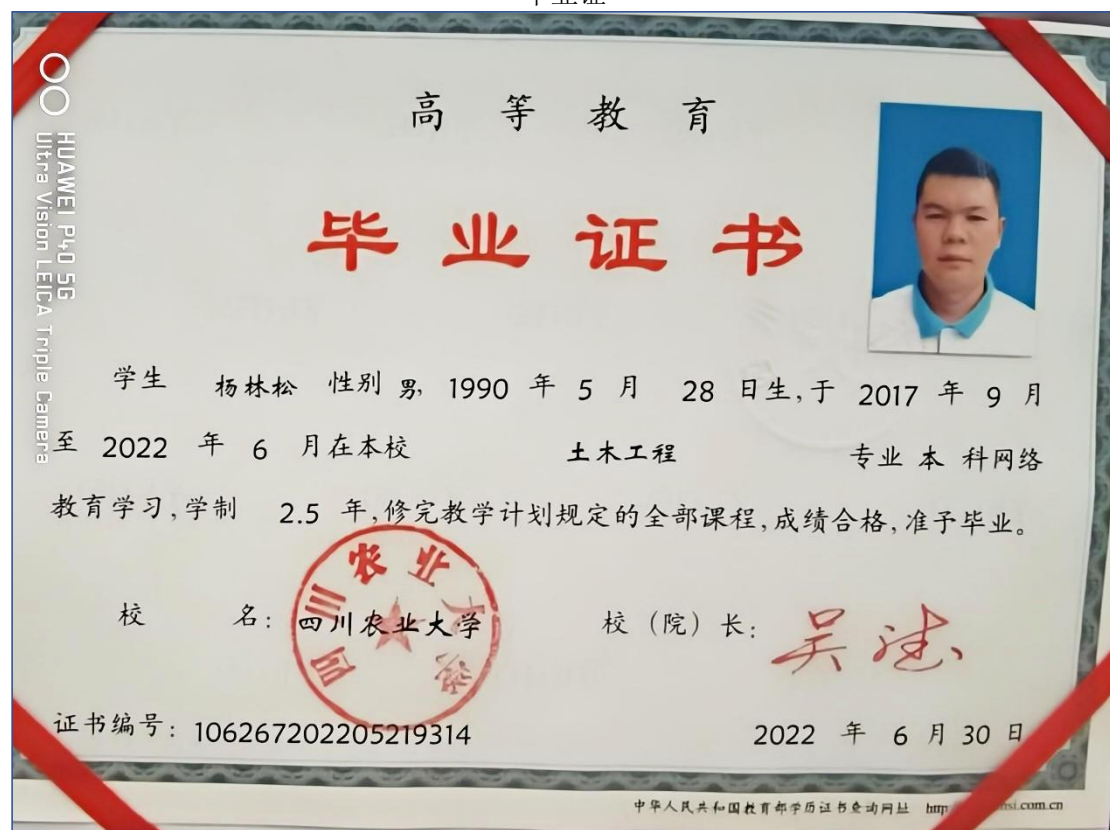 毕业证
HUAWEI P40 5G
Ultra Vision LEICA Triple Camera
高等教育
毕业证书
学生 杨林松 性别 男, 1990 年 5 月 28 日生,于 2017 年 9 月
至 2022 年 6 月在本校 土木工程 专业 本 科网络
教育学习,学制 2.5 年,修完教学计划规定的全部课程,成绩合格,准予毕业。
校 名: 四川农业大学 校(院)长:
四川农业大学
证书编号: 106267202205219314 2022 年 6 月 30 日
中华人民共和国教育部学历证书查询网址 http si.com.cn